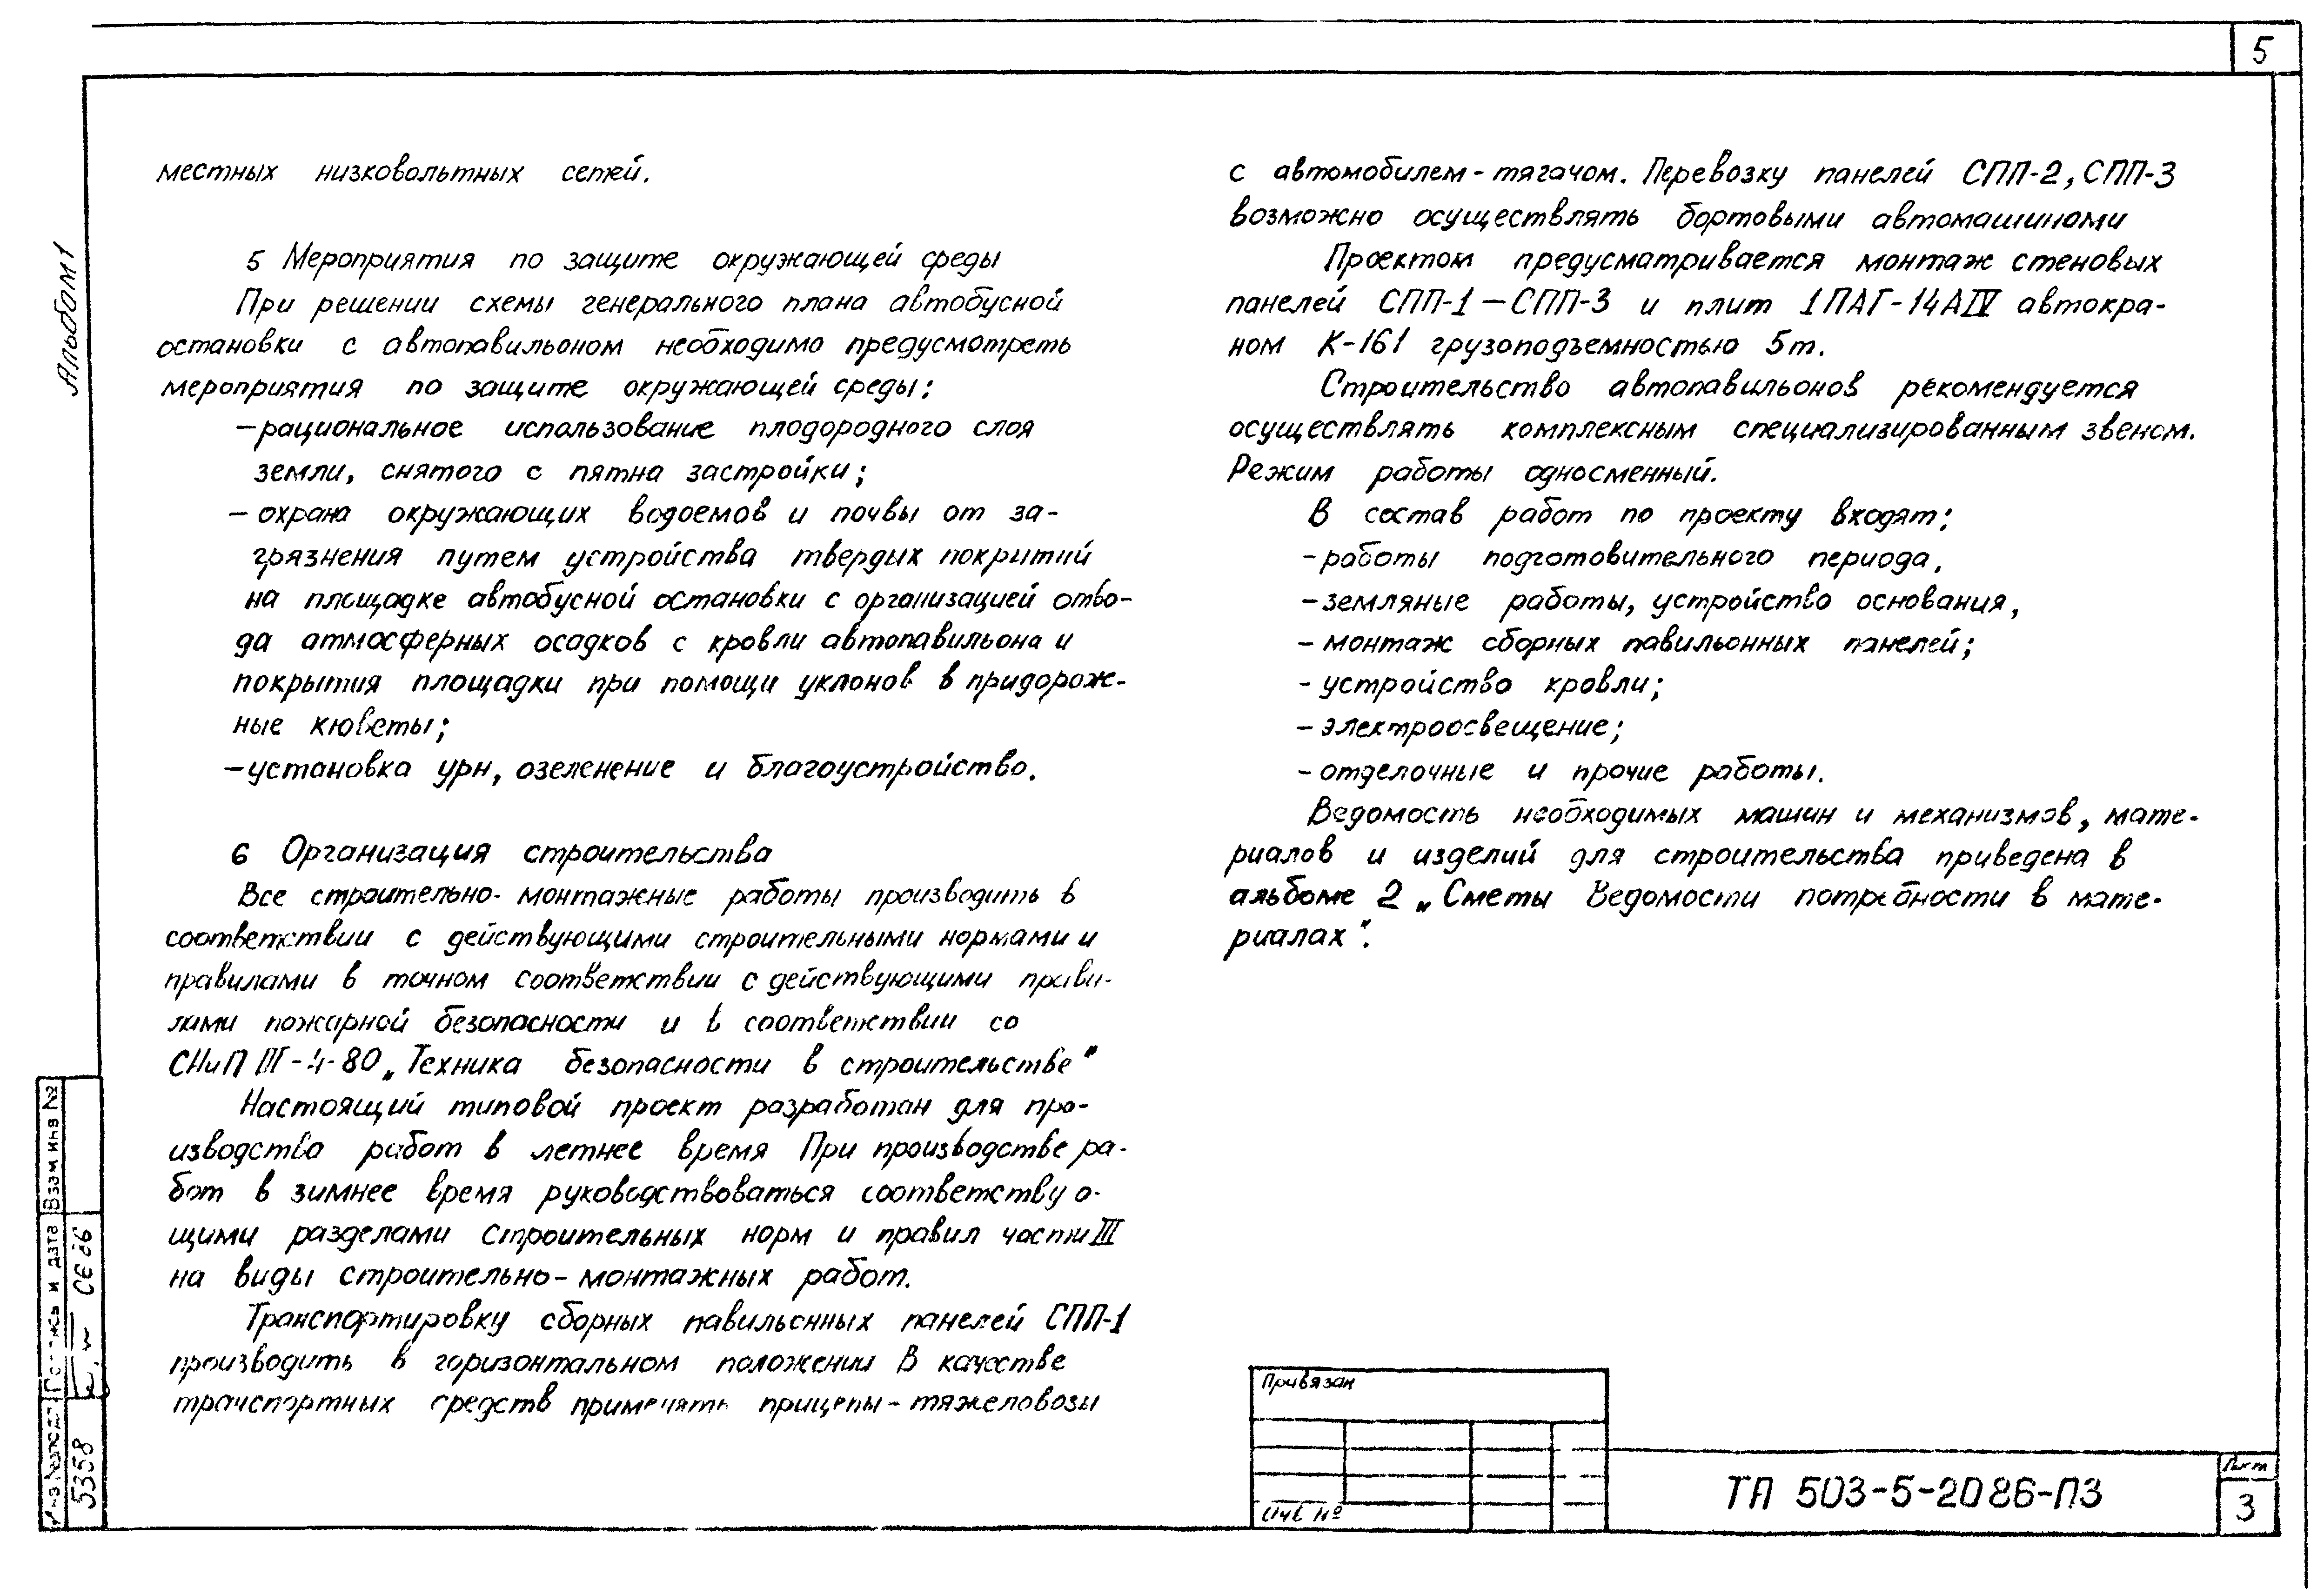 5
Альбом 1
местных низковольтных сетей.
5 Мероприятия по защите окружающей среды
При решении схемы генерального плана автобусной
остановки с автопавильоном необходимо предусмотреть
мероприятия по защите окружающей среды:
– рациональное использование плодородного слоя
земли, снятого с пятна застройки;
– охрана окружающих водоемов и почвы от за-
грязнения путем устройства твердых покрытий
на площадке автобусной остановки с организацией отво-
да атмосферных осадков с кровли автопавильона и
покрытия площадки при помощи уклонов в придорож-
ные кюветы;
– установка урн, озеленение и благоустройство.
6 Организация строительства
Все строительно-монтажные работы производить в
соответствии с действующими строительными нормами и
правилами в точном соответствии с действующими прави-
лами пожарной безопасности и в соответствии со
СНиП III-4-80 „Техника безопасности в строительстве"
Настоящий типовой проект разработан для про-
изводства работ в летнее время При производстве ра-
бот в зимнее время руководствоваться соответствую-
щими разделами строительных норм и правил части III
на виды строительно-монтажных работ.
Транспортировку сборных павильонных панелей СПП-1
производить в горизонтальном положении В качестве
транспортных средств применять прицепы-тяжеловозы
с автомобилем-тягачом. Перевозку панелей СПП-2, СПП-3
возможно осуществлять бортовыми автомашинами
Проектом предусматривается монтаж стеновых
панелей СПП-1 – СПП-3 и плит 1ПАГ-14АIV автокра-
ном К-161 грузоподъемностью 5т.
Строительство автопавильонов рекомендуется
осуществлять комплексным специализированным звеном.
Режим работы односменный.
В состав работ по проекту входят:
- работы подготовительного периода,
- земляные работы, устройство основания,
- монтаж сборных павильонных панелей;
- устройство кровли;
- электроосвещение;
- отделочные и прочие работы.
Ведомость необходимых машин и механизмов, мате-
риалов и изделий для строительства приведена в
альбоме 2 „Сметы Ведомости потребности в мате-
риалах".
Привязан
Инв №
ТП 503-5-20 86-ПЗ
Лист
3
Взам инв №
Подпись и дата
Инв № подл
5358